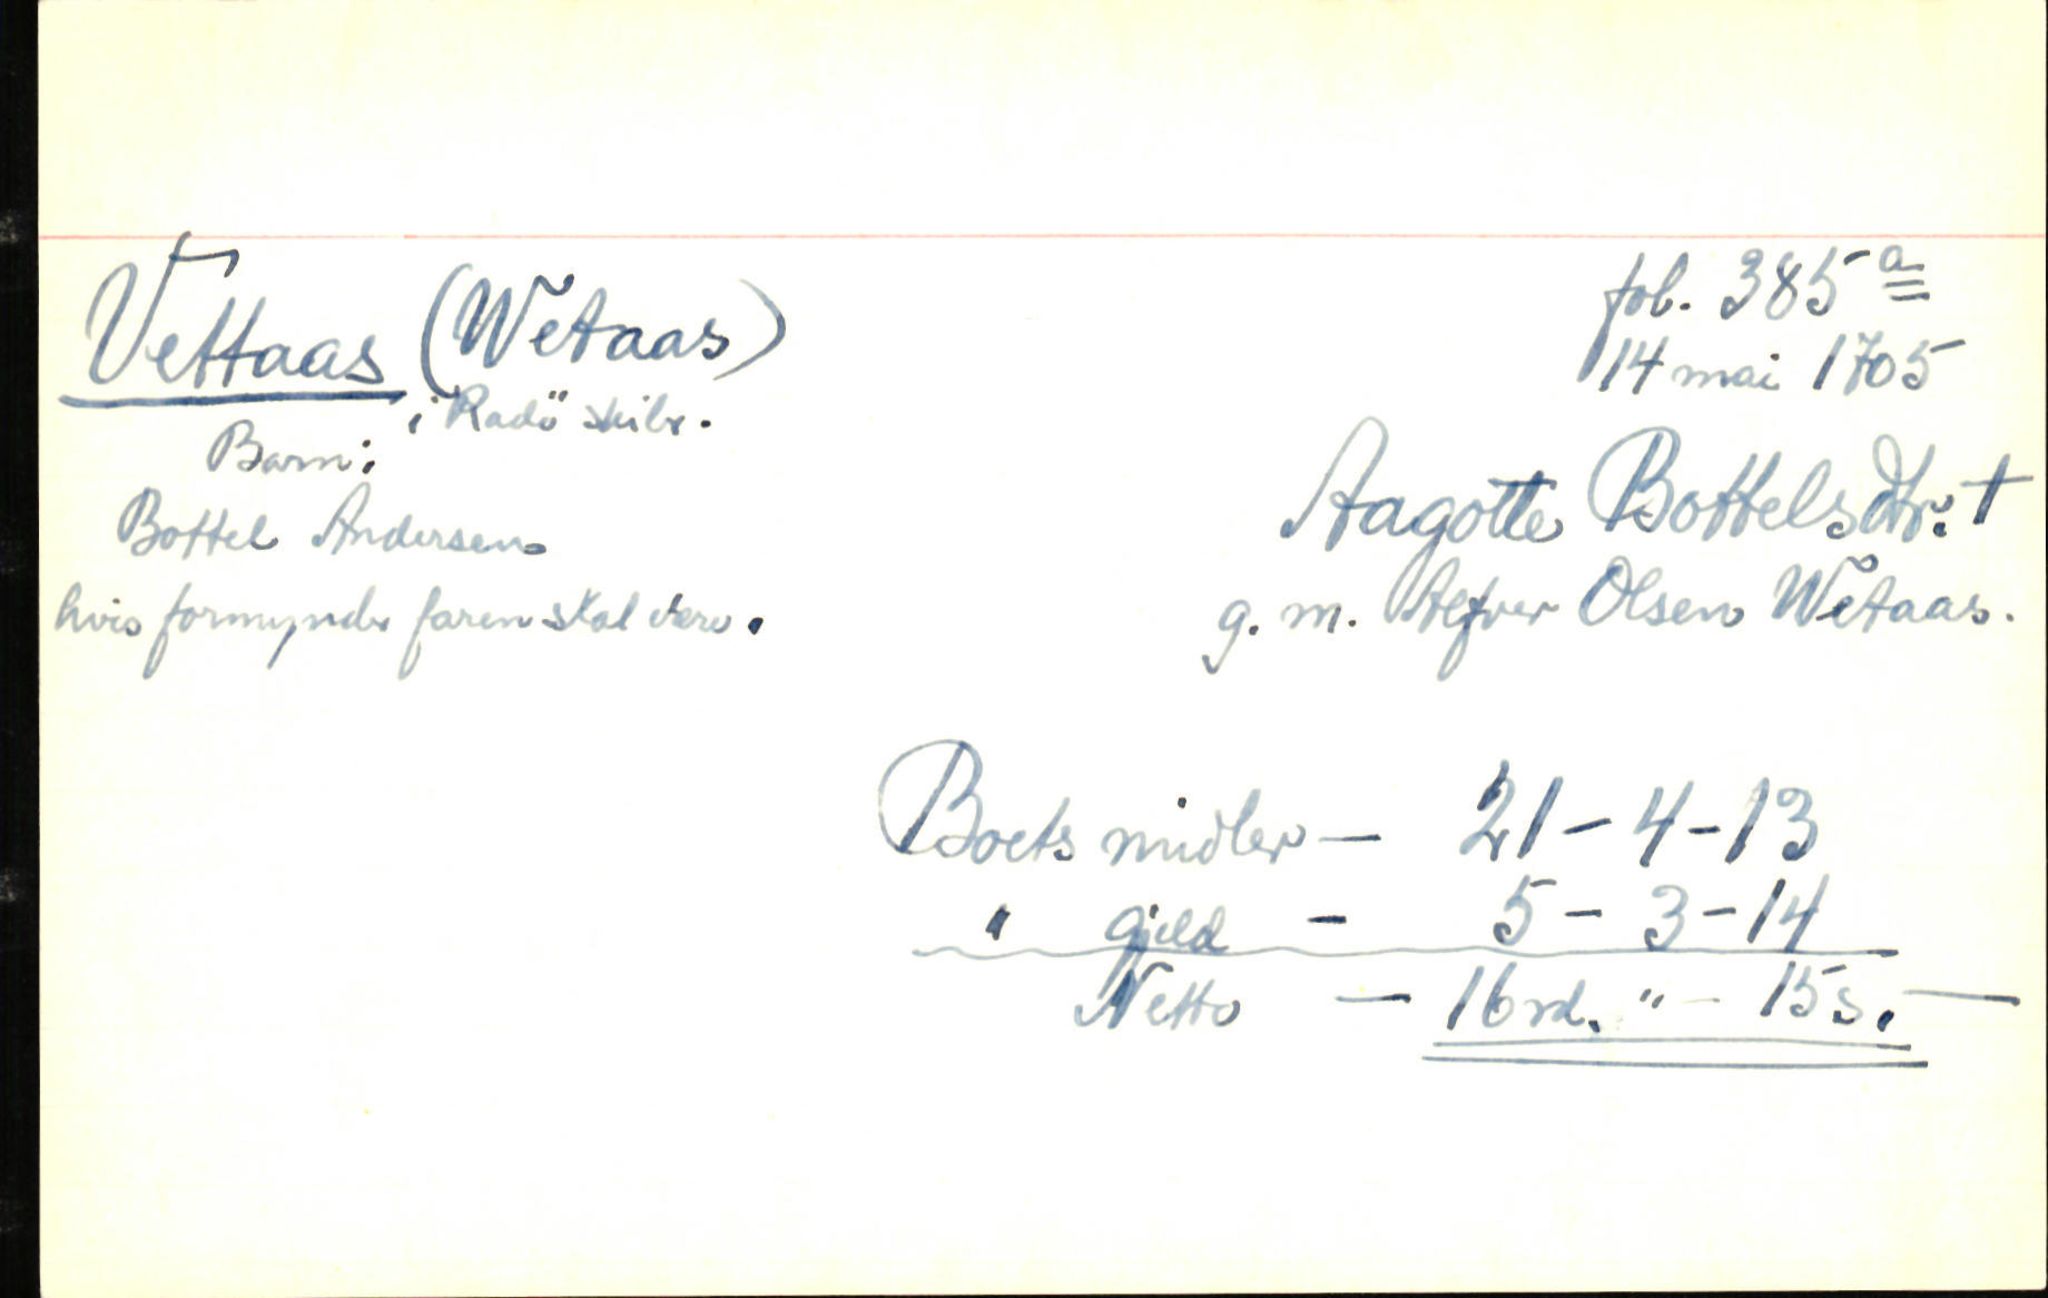 Vettaas (Wetaas)
i Radö skibr.
Barn:
Bottel Andersen
hvis formynder faren skal være.
fol. 385 a
14 mai 1705
Aagotte Bottelsdtr. †
g. m. Olsen Wetaas.
Boets midler — 21 – 4 – 13
" gjeld – 5 – 3 – 14
Netto — 16 rd. " – 15 s. —